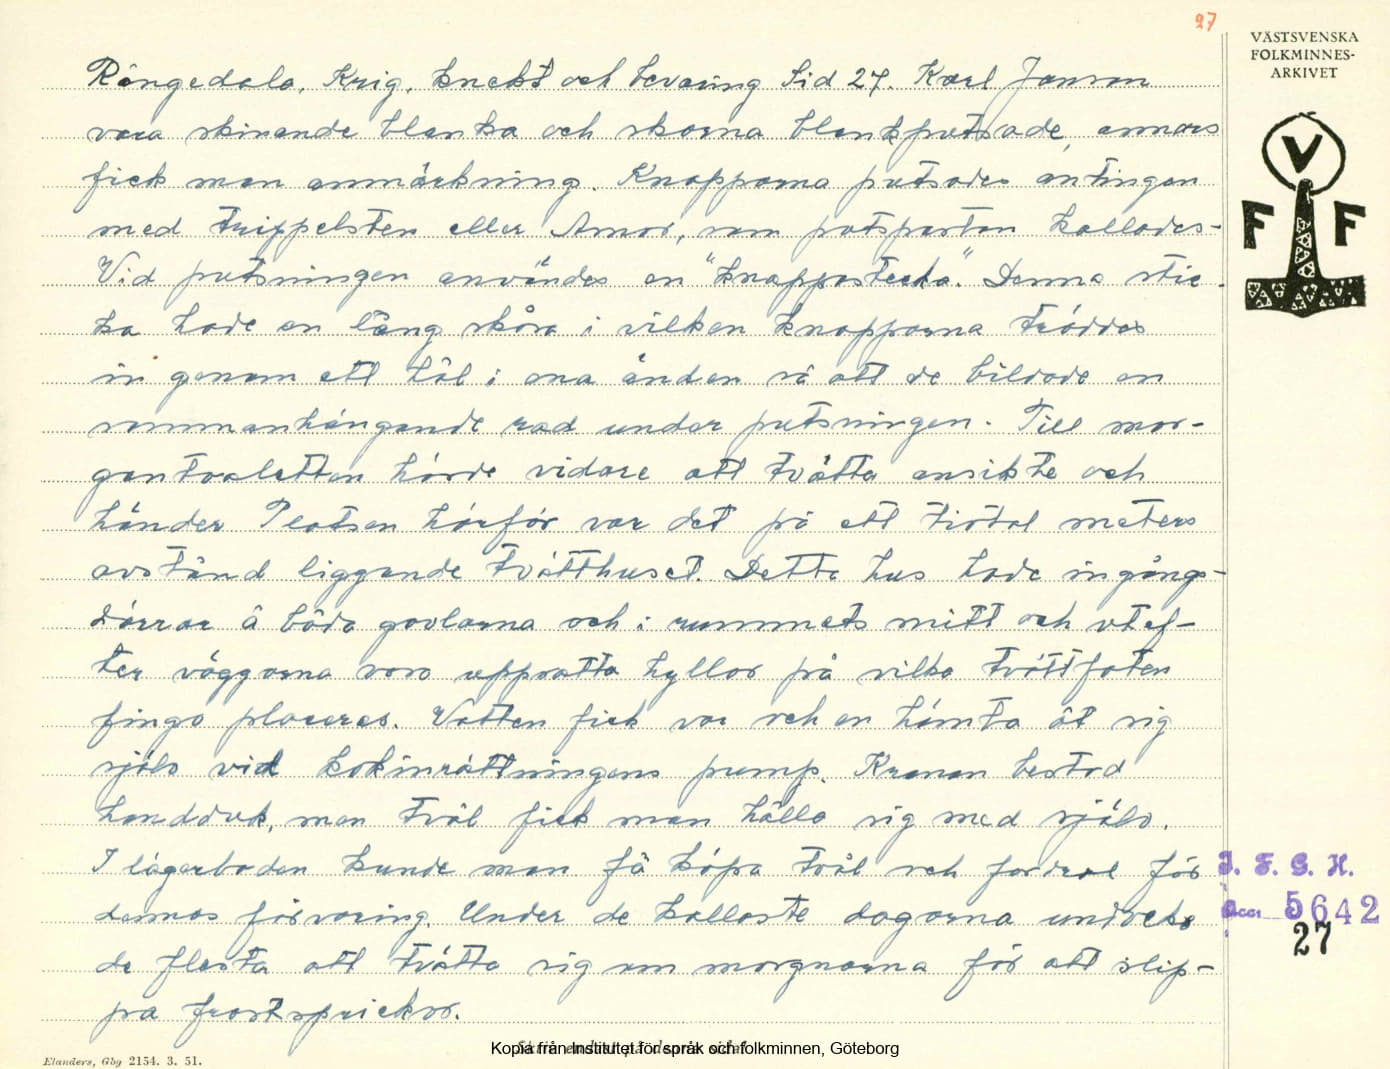 27
VÄSTSVENSKA
FOLKMINNES-
ARKIVET
V
F F
Rångedala. Krig, knekt och bevaring Sid 27. Karl Janson
vara skinande blanka och skorna blankputsade, annars
fick man anmärkning. Knapparna putsades antingen
med trippelsten eller Amor, som putspastan kallades-
Vid putsningen användes en "knappsticka". Denna stic-
ka hade en lång skåra i vilken knapparna träddes
in genom ett hål i ena änden så att de bildade en
sammanhängande rad under putsningen. Till mor-
gontoaletten hörde vidare att tvätta ansikte och
händer Platsen härför var det på ett tiotal meters
avstånd liggande tvätthuset. Detta hus hade ingångs-
dörrar å båda gavlarna och i rummets mitt och utef-
ter väggarna voro uppsatta hyllor på vilka tvättfaten
fingo placeras. Vatten fick var och en hämta åt sig
själv vid kokinrättningens pump. Kronan bestod
handduk, men tvål fick man hålla sig med själv.
I lägerboden kunde man få köpa tvål och fodral för
dennas förvaring. Under de kallaste dagarna undveko
de flesta att tvätta sig om morgnarna för att slip-
pa frostsprickor.
I. F. G. H.
Acc. 5642
27
Elanders, Gbg 2154. 3. 51.
Skriv endast på denna sida!
Kopia från Institutet för språk och folkminnen, Göteborg